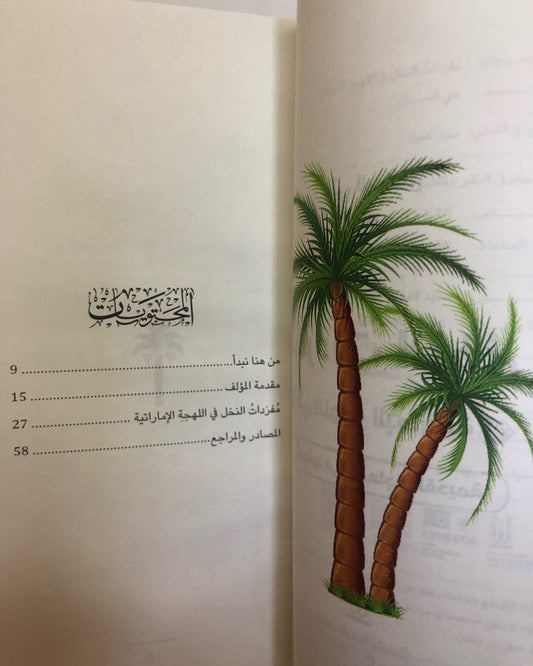 المحتويات
من هنا نبدأ .......................................... 9
مقدمة المؤلف .......................................... 15
مُفرَداتُ النخل في اللهجةِ الإماراتية .......................... 27
المصادر والمراجع .......................................... 58